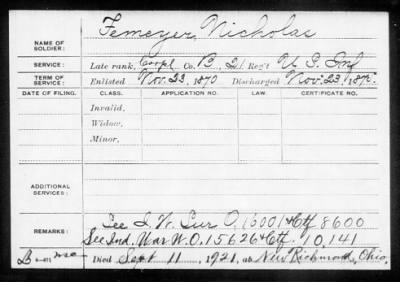 Femeyer Nicholas
NAME OF SOLDIER:
SERVICE: Late rank, Corpl Co. B, 21 Reg't U S Inf
TERM OF SERVICE: Enlisted Nov. 23, 1870 Discharged Nov. 23, 187
DATE OF FILING. CLASS. APPLICATION NO. LAW. CERTIFICATE NO.
Invalid,
Widow,
Minor,
ADDITIONAL SERVICES:
REMARKS: See I. W. Sur O. 16001 & Ctf 8600
See Ind. War W.O. 15626 & Ctf. 10,141
Died Sept 11, 1921, at New Richmond, Ohio.